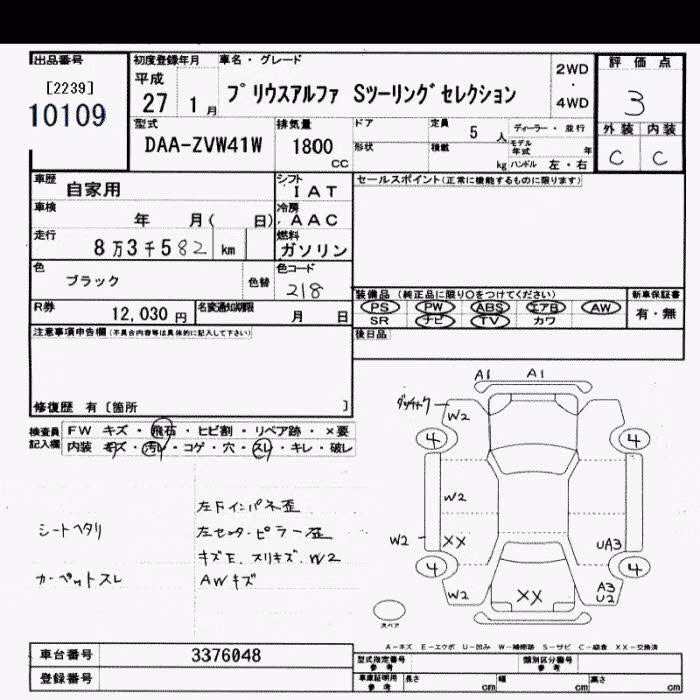 出品番号
[2239]
10109
初度登録年月
平成
27 1月
車名・グレード
プリウスアルファ Sツーリングセレクション
2WD
・
4WD
評価点
3
外装 内装
C C
型式
DAA-ZVW41W
排気量
1800
CC
ドア
定員
5人
ディーラー・並行
形状
積載
kg
モデル年式 年
ハンドル 左・右
車歴
自家用
シフト
IAT
セールスポイント(正常に機能するものに限ります)
車検
年 月( 日)
冷房
AAC
走行
8万3千582 km
燃料
ガソリン
色
ブラック
色替
色コード
218
R券
12,030円
名変通知期限
月 日
装備品(純正品に限り○をつけてください)
PS PW ABS エアB AW
SR ナビ TV カワ
新車保証書
有・無
後日品
注意事項申告欄(不具合内容等は具体的に記入して下さい)
修復歴 有〔箇所 〕
検査員記入欄
FW キズ・飛石・ヒビ割・リペア跡・×要
内装 キズ・汚レ・コゲ・穴・スレ・キレ・破レ
左Fインパネ歪
シートヘタリ
左センターピラー歪
キズE、スリキズ、W2
カーペットスレ
AWキズ
A1 A1
W2
4 4
W2
W2 XX
UA3
4 4
W2
XX
A3
U2
スペア
A-キズ E-エクボ U-凹み W-補修跡 S-サビ C-腐食 XX-交換済
車台番号
3376048
登録番号
型式指定番号
参考
類別区分番号
参考
車庫証明用
参考
長さ cm
幅 cm
高さ cm